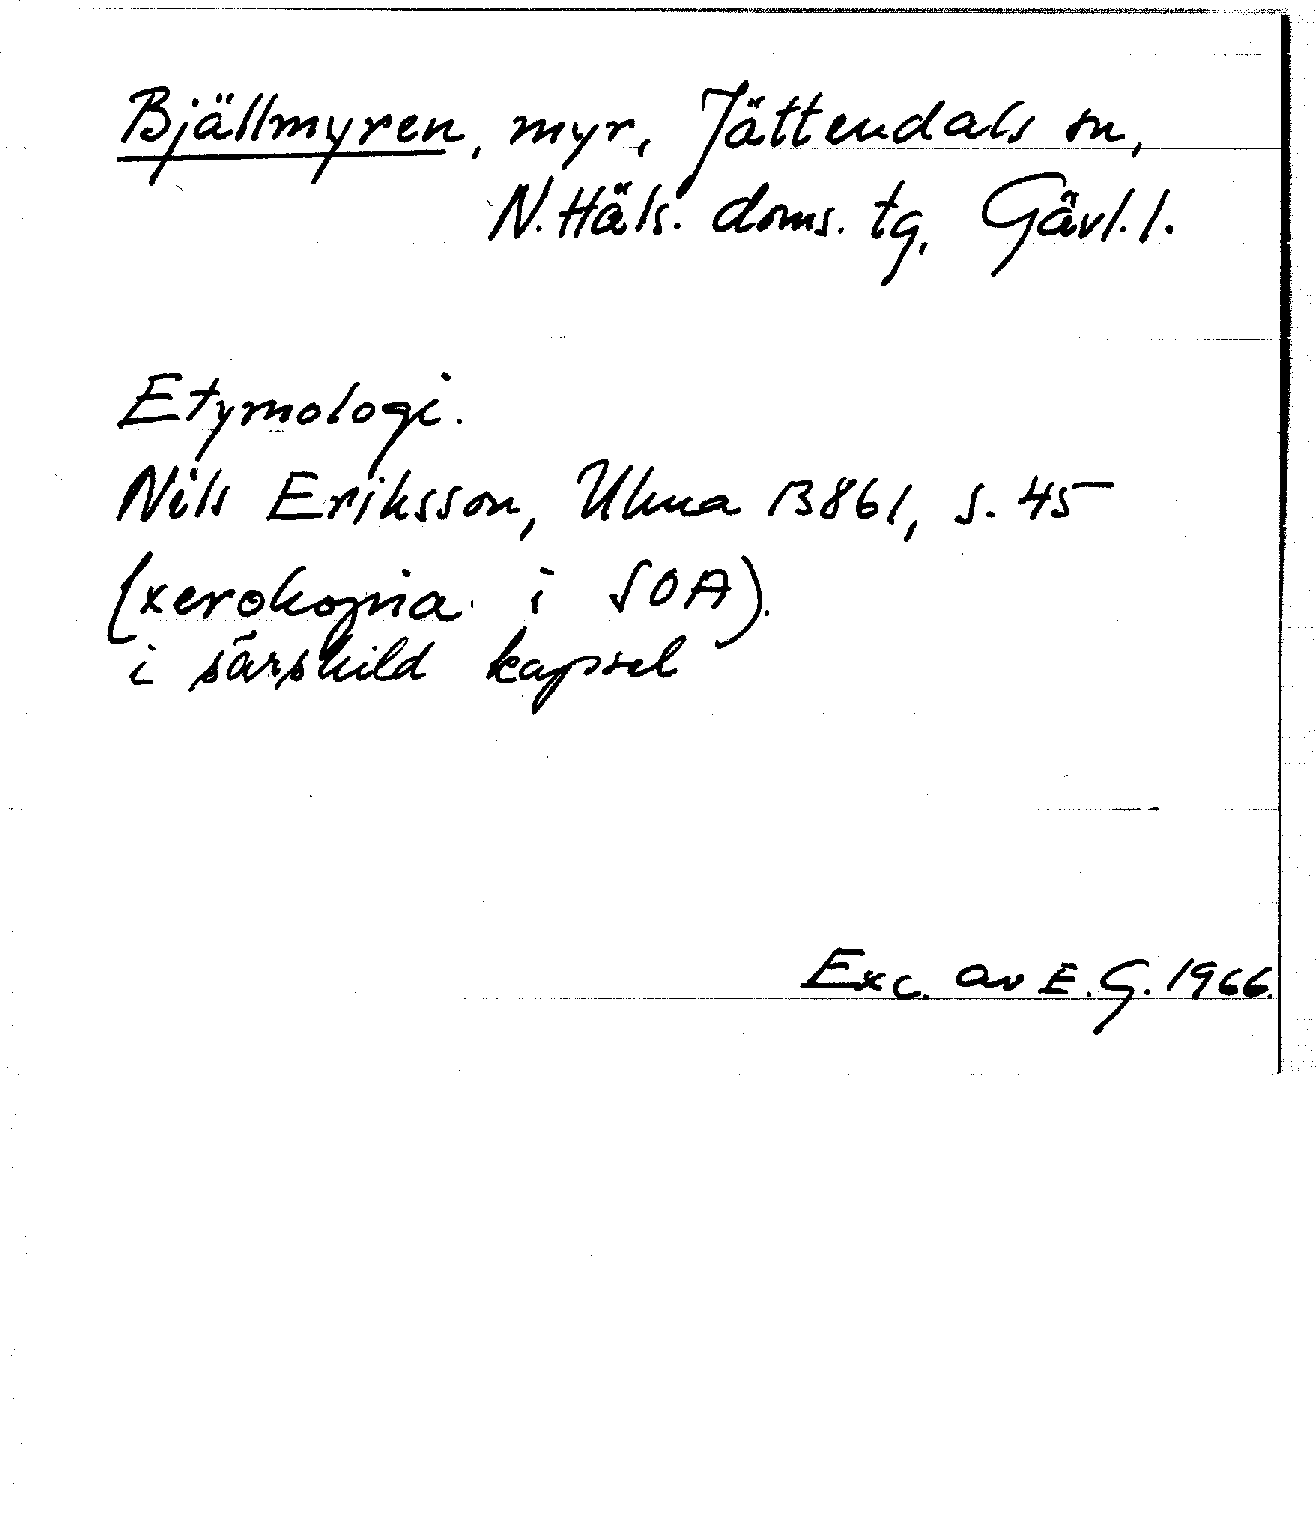 Bjällmyren, myr, Jättendals sn,
N. Häls. doms. tg, Gävl. l.
Etymologi.
Nils Eriksson, Ulma 13861, s. 45
(xerokopia i SOA).
i särskild kapsel
Exc. av E. G. 1966.